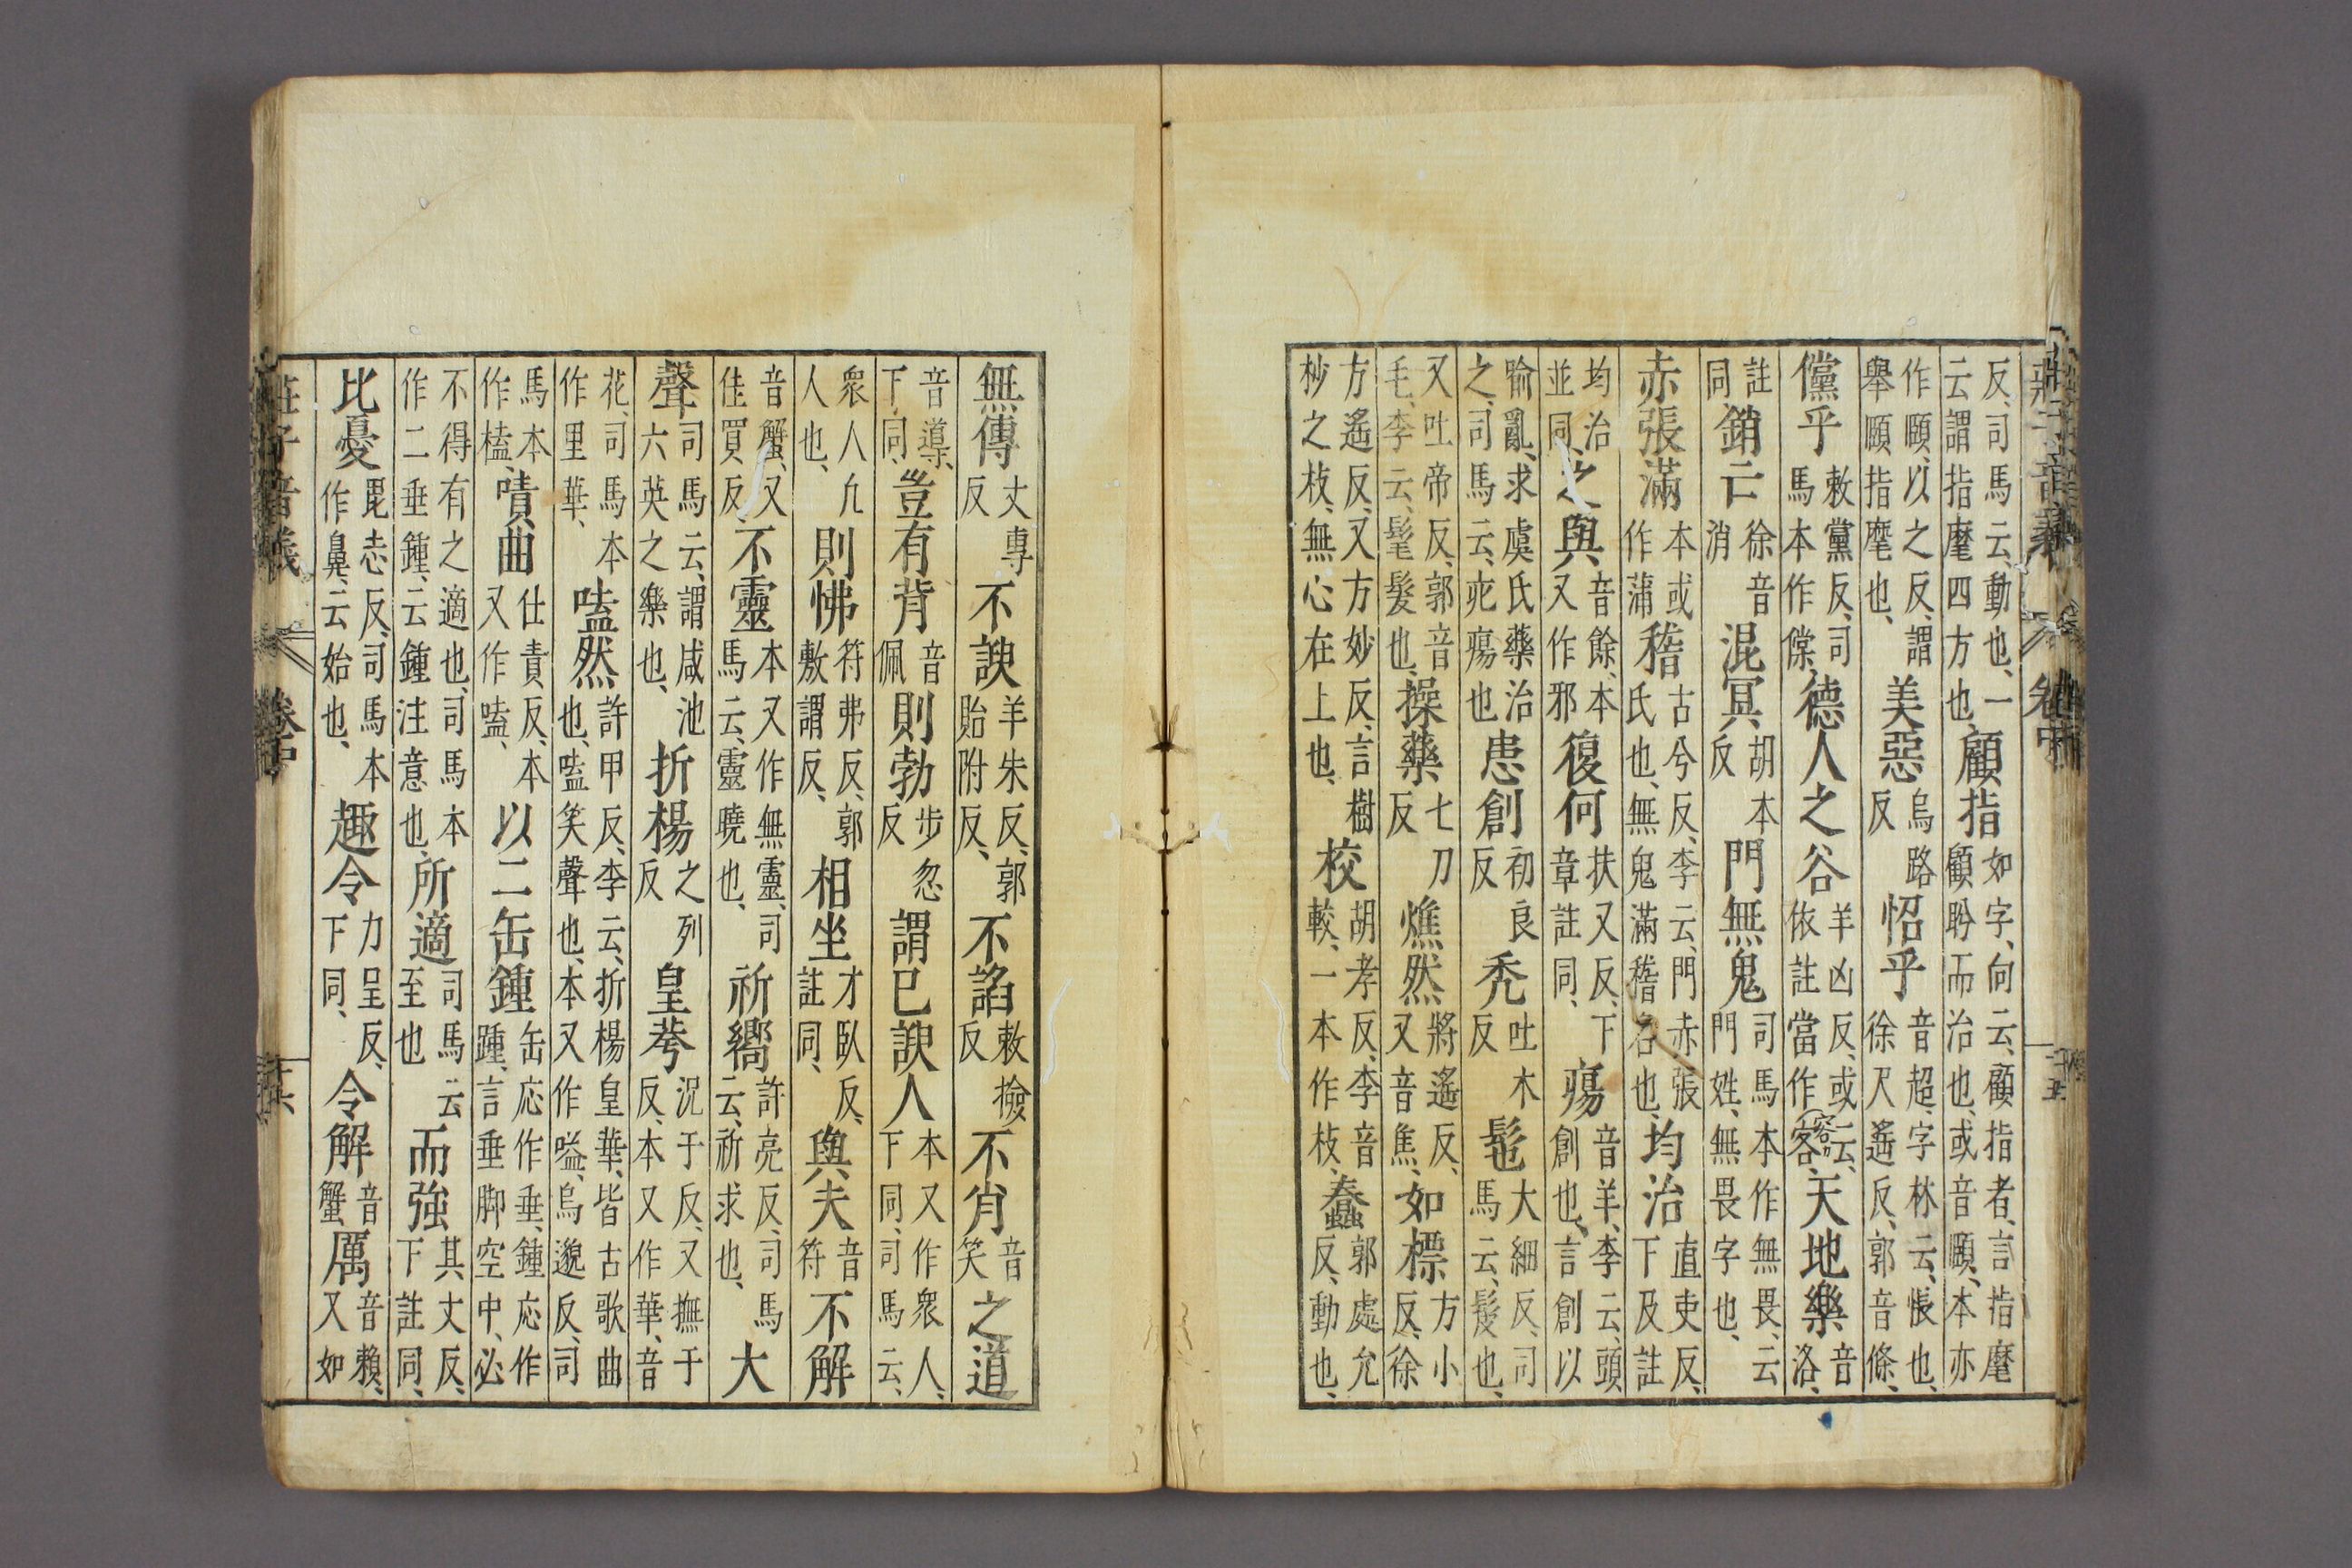 莊子音義 卷中 二十五
反、司馬云、動也、一云謂指麾四方也、顧指如字、向云、顧指者、言指麾顧盼而治也、或音頤、本亦
作頤、以之反、謂舉頤指麾也、美惡烏路反怊乎音超、字林云、悵也、徐尺遙反、郭音條、
儻乎敕黨反、司馬本作德人之谷羊凶反、或云、依註當作客、容天地樂音洛、
註同、銷亡徐音消混冥胡本反門無鬼司馬本作無畏、云門姓、無畏字也、
赤張滿本或作蒲稽古兮反、李云、門赤張氏也、無鬼滿稽名也、均治直吏反、下及註
均治並同、之與音餘、本又作邪復何扶又反、下章註同、瘍音羊、李云、頭創也、言創以
喻亂、求虞氏藥治之、司馬云、疕瘍也患創初良反禿吐木反髢大細反、司馬云、髲也、
又吐帝反、郭音毛、李云、髦髮也、操藥七刀反燋然將遙反、又音焦、如標方小反、徐
方遙反、又方妙反、言樹杪之枝、無心在上也、校胡孝反、李音較、一本作枝、蠢郭處允反、動也、
無傳丈專反不諛羊朱反、郭貽附反、不諂敕撿反不肖音笑之道
音導、下同、豈有背音佩則勃步忽反謂已諛人本又作眾人、下同、司馬云、
眾人凡人也、則怫符弗反、郭敷謂反、相坐才臥反、註同、與夫音符不解
音蟹、又佳買反、不靈本又作無靈、司馬云、靈曉也、祈嚮許亮反、司馬云、祈求也、大
聲司馬云、謂咸池六英之樂也、折楊之列反皇荂況于反、又撫于反、本又作華、音
花、司馬本作里華、嗑然許甲反、李云、折楊皇華、皆古歌曲也、嗑笑聲也、本又作嗌、烏邈反、司
馬本作榼、嘖曲仕責反、本又作嗑、以二缶鍾缶應作垂、鍾應作踵、言垂腳空中、必
不得有之適也、司馬本作二垂鍾、云鍾注意也、所適司馬云至也而強其丈反、下註同、
比憂毘志反、司馬本作鼻、云始也、趣令力呈反、下同、令解音蟹厲音賴、又如
莊子音義 卷中 二十六